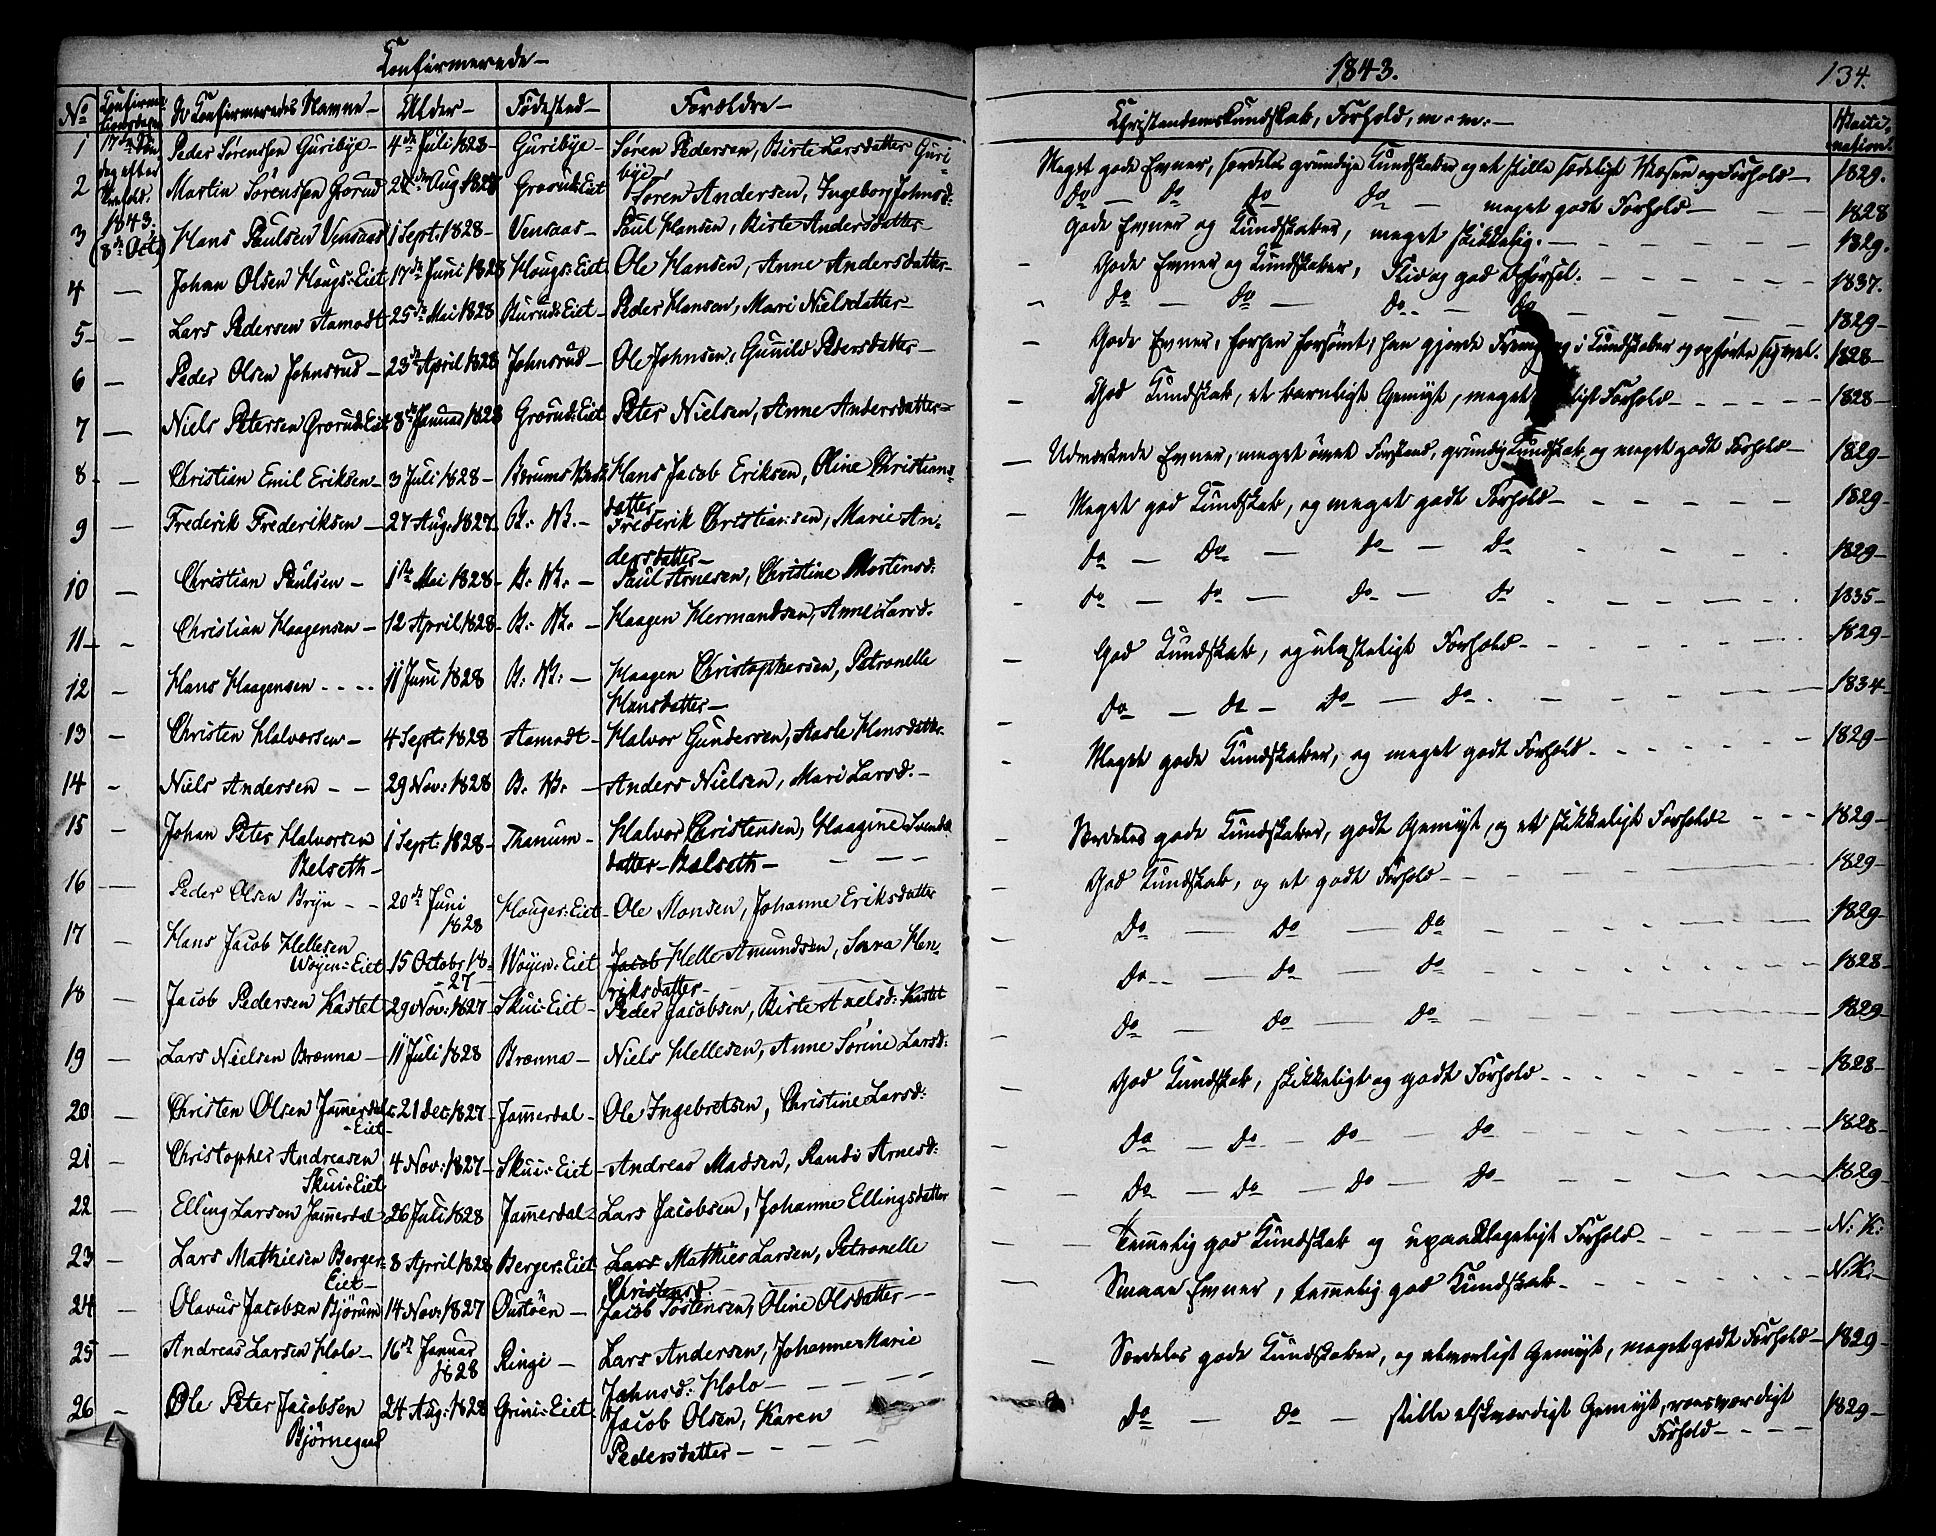 Confirmerede
1843.
134.
No Confirmationsdagen De Confirmeredes Navne Alder Födested Forældre Christendomskundskab, Forhold, m. m. Vaccination.
17de Søndag efter Trefold. 1843. (8de Octo)
1 Peder Sörenssen Guribye 4de Juli 1828 Guribye Sören Pedersen, Birte Larsdatter Guribye Meget gode Evner, særdeles grundige Kundskaber og et stille sædeligt Væsen og Forhold 1829.
2 Martin Sörenssen Grorud Aug 1828 Grorud:Eiet Sören Andersen, Ingeborg Johnsd: do do do do meget godt Forhold 1828
3 Hans Paulsen Vensaas 1 Sept: 1828 Vensaas Paul Hansen, Birte Andersdatter Gode Evner og Kundskaber, meget skikkelig. 1829.
4 Johan Olsen Hougs:Eiet 17de Juni 1828 Hougs:Eiet Ole Hansen, Anne Andersdatter Gode Evner og Kundskaber, Flid og god Opførsel. 1837.
5 Lars Pedersen Aamodt 25de Mai 1828 Burud:Eiet Peder Hansen, Mari Nielsdatter do do do do 1829
6 Peder Olsen Johnsrud 23de April 1828 Johnsrud Ole Johnsen, Gunild Pedersdatter Gode Evner, forhen forsömt, han gjorde i Kundskaber og opförte sig vel. 1828
7 Niels Petersen Grorud:Eiet 8de Januar 1828 Grorud:Eiet Peter Nielsen, Anne Andersdatter God Kundskab, et barnligt Gemyt, meget Forhold 1828
8 Christian Emil Eriksen 3 Juli 1828 Bærums Værk Hans Jacob Eriksen, Oline Christiansdatter Udmærkede Evner, meget övet Forstand, grundig Kundskab og meget godt Forhold 1829
9 Frederik Frederiksen 27 Aug: 1827 B: V: Frederik Christiansen, Marie Andersdatter Meget god Kundskab, og meget godt Forhold 1829
10 Christian Paulsen 1ste Mai 1828 B: V: Paul Arnesen, Christine Mortensd: do do do do 1829
11 Christian Haagensen 12 April 1828 B: V: Haagen Hermandsen, Anne Larsd: do do do do 1835
12 Hans Haagensen 11 Juni 1828 B: V: Haagen Christophersen, Petronelle Hansdatter God Kundskab, og ulasteligt Forhold 1829
13 Christen Halvorsen 4 Sept: 1828 Aamodt Halvor Gundersen, Aasle Hansdatter do do do do 1834
14 Niels Andersen 29 Nov: 1828 B: V: Anders Nielsen, Mari Larsd: Meget gode Kundskaber, og meget godt Forhold 1829
15 Johan Peter Halvorsen Belseth 1 Sept: 1828 Thanum Halvor Christensen, Haagine Svendsdatter Balseth Særdeles gode Kundskaber, godt Gemyt, og et skikkeligt Forhold 1829
16 Peder Olsen Bryn 20de Juni 1828 Houger:Eiet Ole Monsen, Johanne Eriksdatter God Kundskab, og et godt Forhold 1829
17 Hans Jacob Hellesen Wöyen:Eiet 15 Octobr 1827 Wöyen:Eiet Jacob Helle Amundsen, Sara Henriksdatter do do do 1829
18 Jacob Pedersen Kastet 29 Nov: 1827 Skui:Eiet Peder Jacobsen, Birte Axelsd: Kastet do do do 1828
19 Lars Nielsen Brænna 11 Juli 1828 Brænna Niels Hellesen, Anne Sörine Larsd: do do do 1829
20 Christen Olsen Jammerdal:Eiet 21 Dec: 1827 Jammerdal Ole Ingebretsen, Christine Larsd: God Kundskab, skikkeligt og godt Forhold 1828
21 Christopher Andreasen Skui:Eiet 4 Nov: 1827 Skui:Eiet Andreas Madsen, Randi Arnesd: do do do do 1828
22 Elling Larsen Jammerdal 26 Juli 1828 Jammerdal Lars Jacobsen, Johanne Ellingsdatter do do do do 1829
23 Lars Mathiesen Berger:Eiet 8 April 1828 Berger:Eiet Lars Mathies Larsen, Petronelle Christensd: Temmelig god Kundskab og upaaklageligt Forhold N: K:
24 Olavus Jacobsen Björum 14 Nov: 1827 Oustöen Jacob Tostensen, Oline Olsdatter Smaae Evner, temmelig god Kundskab N: K:
25 Andreas Larsen Holo 16de Januar 1828 Ringi Lars Andersen, Johanne Marie Johnsd: Holo Særdeles gode Kundskaber, og alvorligt Gemyt, meget godt Forhold 1829
26 Ole Peter Jacobsen Björnegaard 24 Aug: 1828 Grini:Eiet Jacob Olsen, Karen Pedersdatter do do stille elskværdigt Gemyt, rosværdigt Forhold 1829